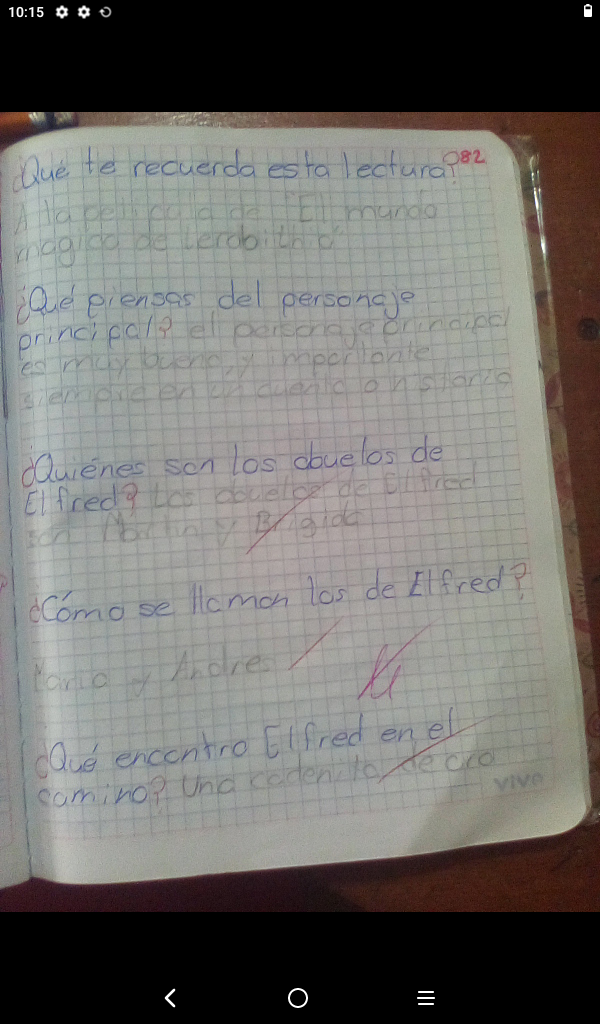 10:15
¿Qué te recuerda esta lectura? 82
A la pelicula de "El mundo
magico de terabithia"
¿Qué piensas del personaje
principal? el personaje principal
es muy bueno, y importante
siempre en un cuento o historia
¿Quiénes son los abuelos de
Elfred? Los abuelos de Elfred
son Martin y Brigida
¿Cómo se llaman los de Elfred?
Maria y Andres
¿Qué encontro Elfred en el
camino? Una cadenita de oro
VIVA